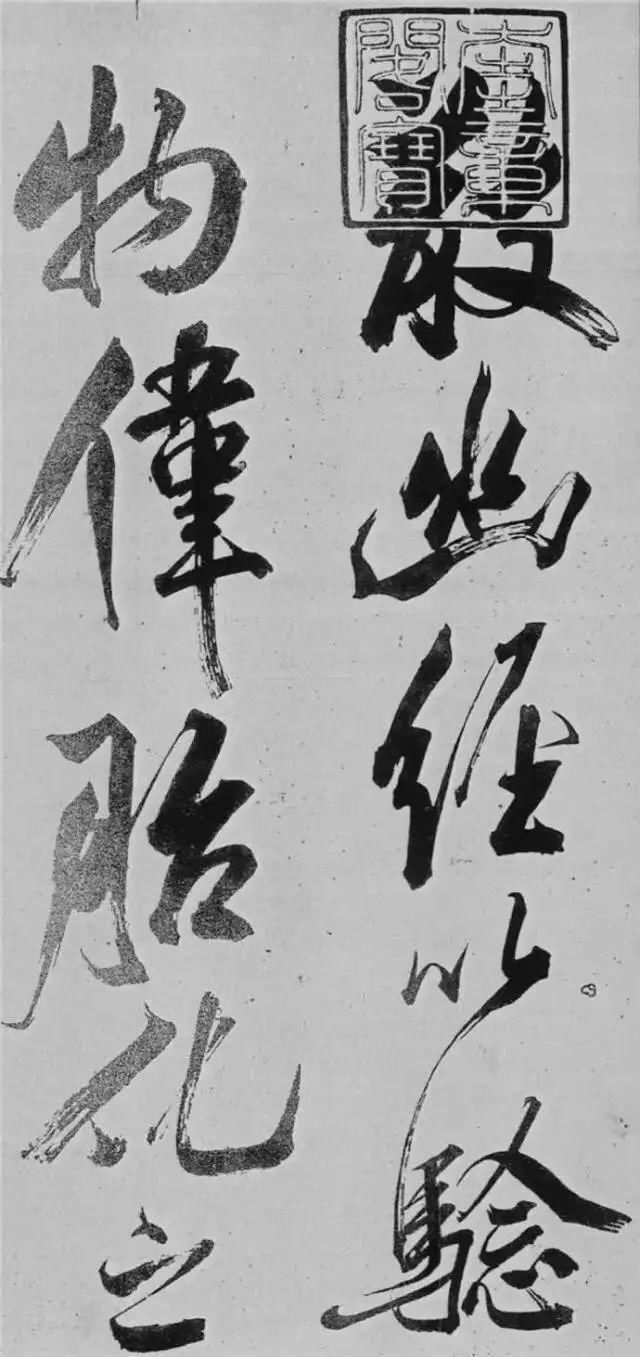 奎章閣寶
散幽經以騐
物偉胎化之